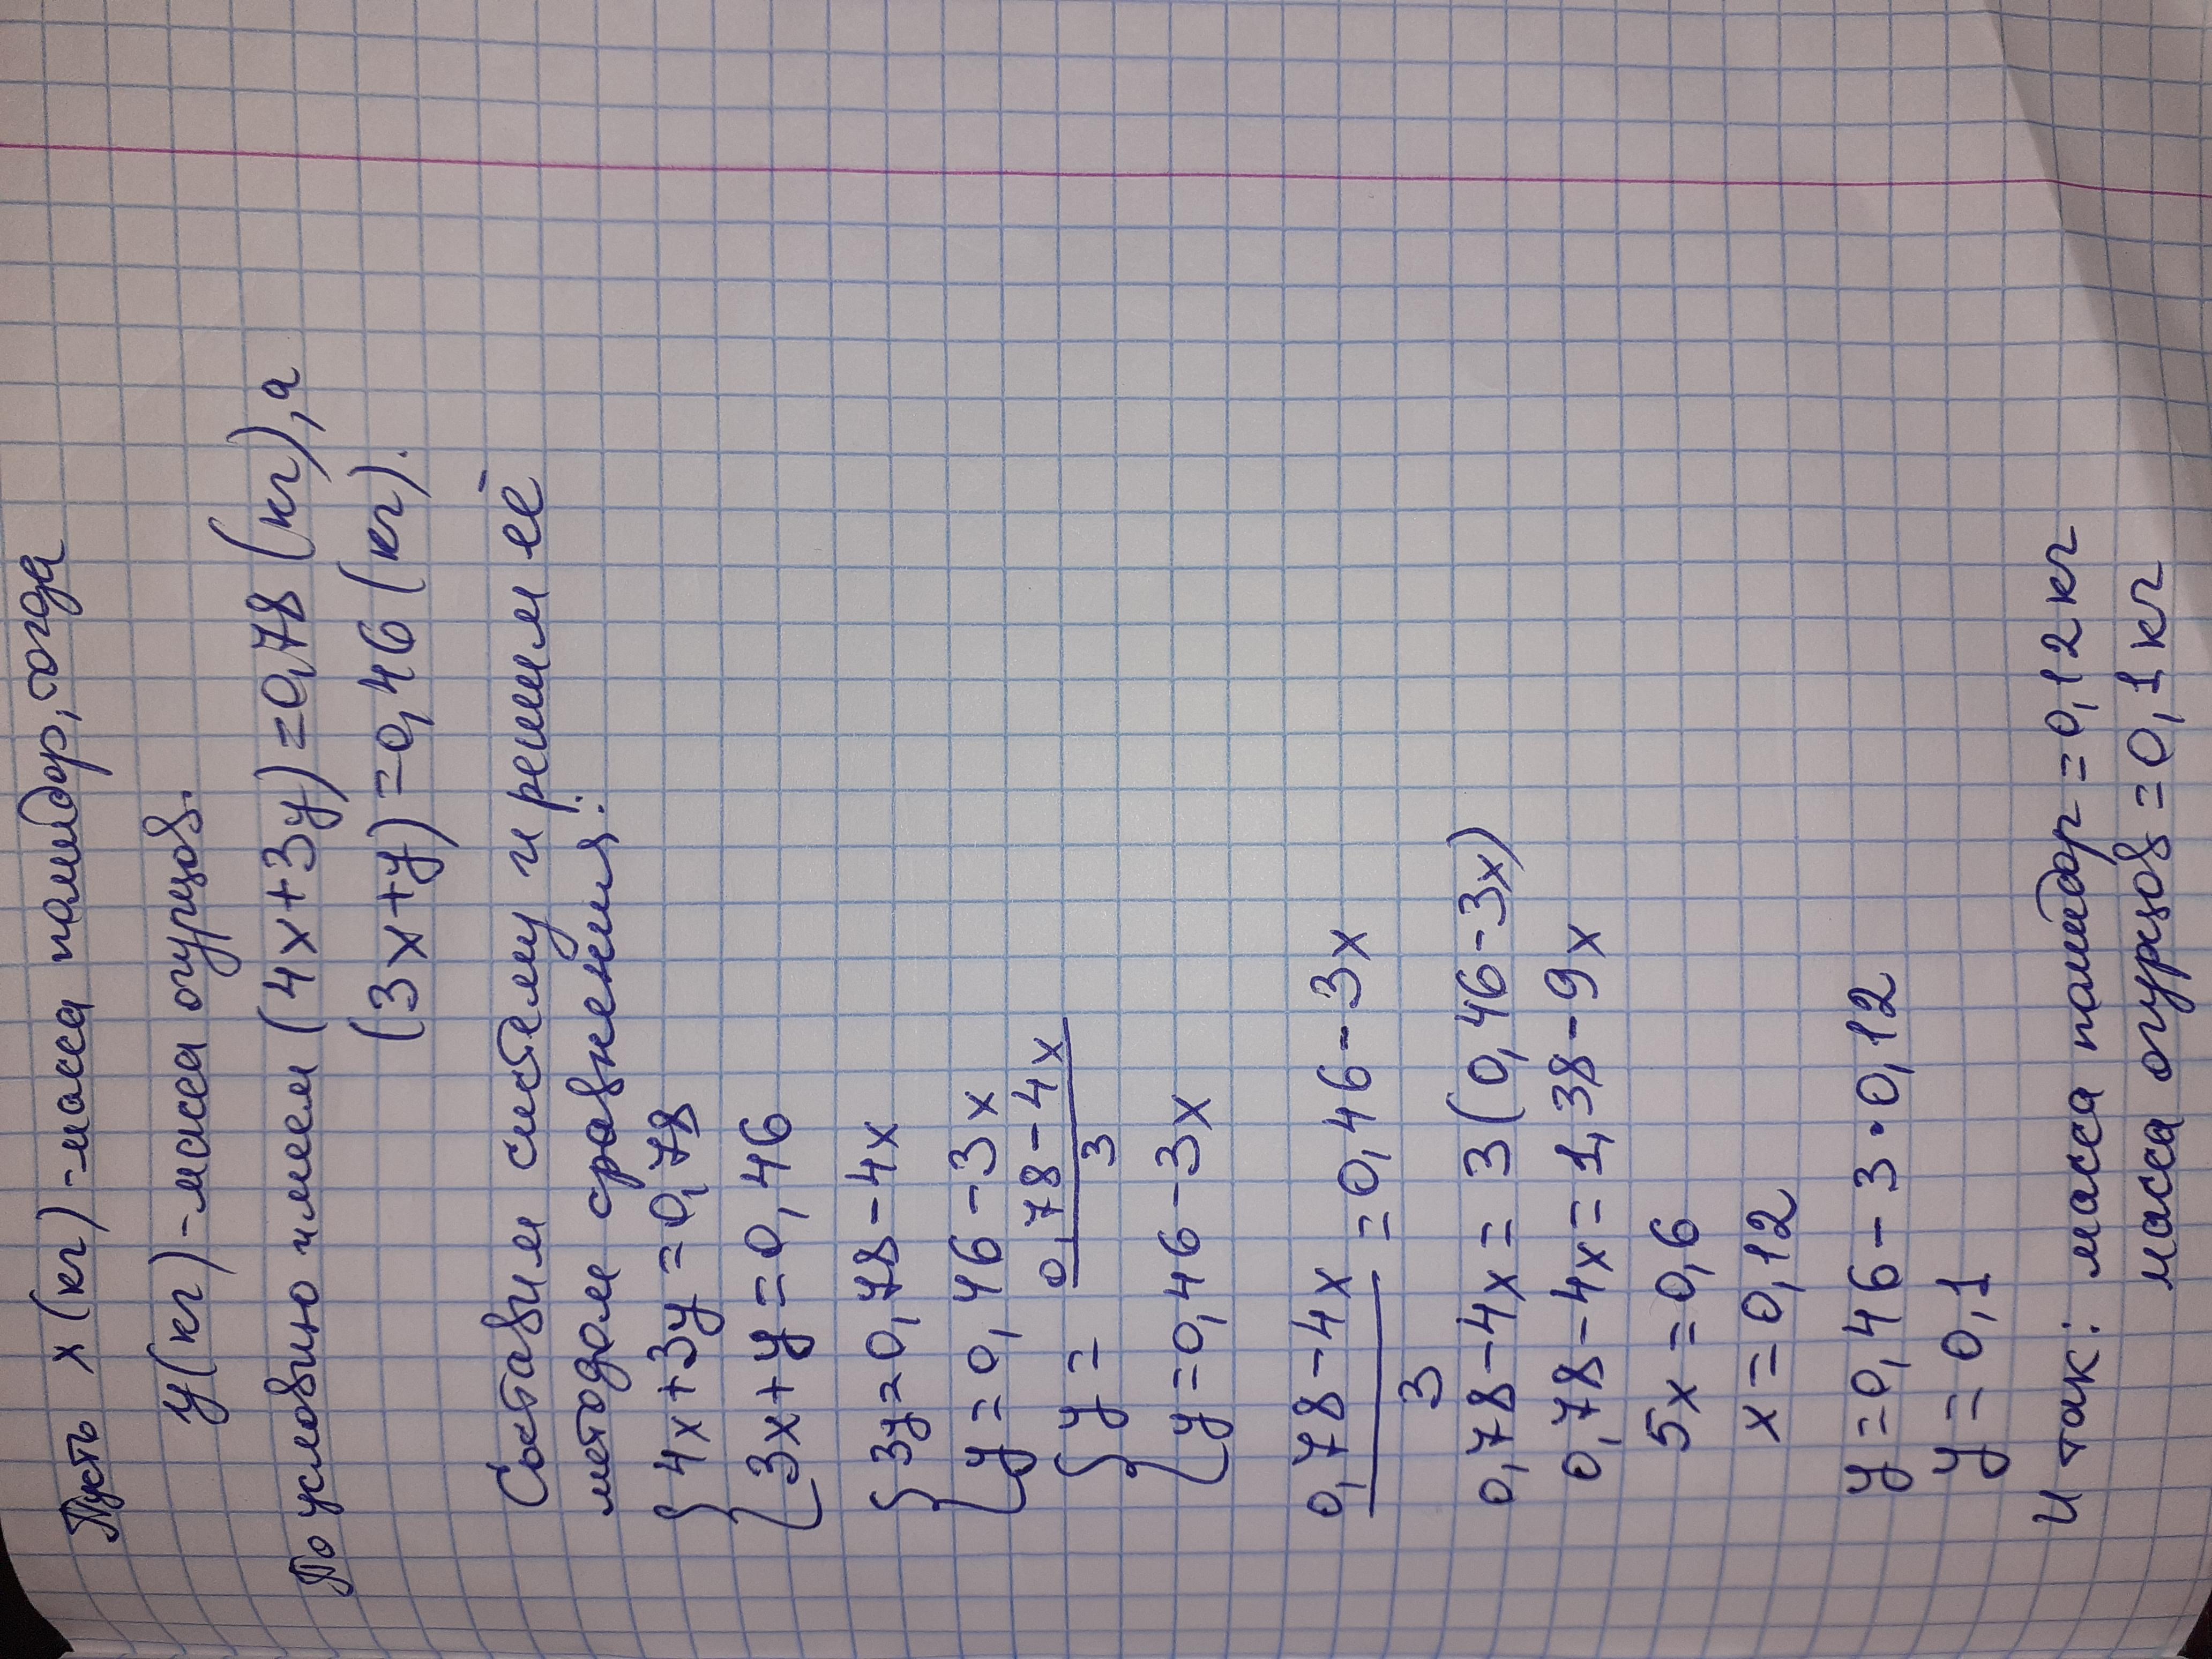 Пусть x (кг) - масса помидор, тогда
y (кг) - масса огурцов.
По условию имеем (4x+3y)=0,78 (кг), а
(3x+y)=0,46 (кг).
Составим систему и решим её
методом сравнения:
{4x+3y=0,78
{3x+y=0,46
{3y=0,78-4x
{y=0,46-3x
{y= (0,78-4x)/3
{y=0,46-3x
(0,78-4x)/3 =0,46-3x
0,78-4x=3(0,46-3x)
0,78-4x=1,38-9x
5x=0,6
x=0,12
y=0,46-3•0,12
y=0,1
И так: масса помидор=0,12кг
масса огурцов=0,1кг